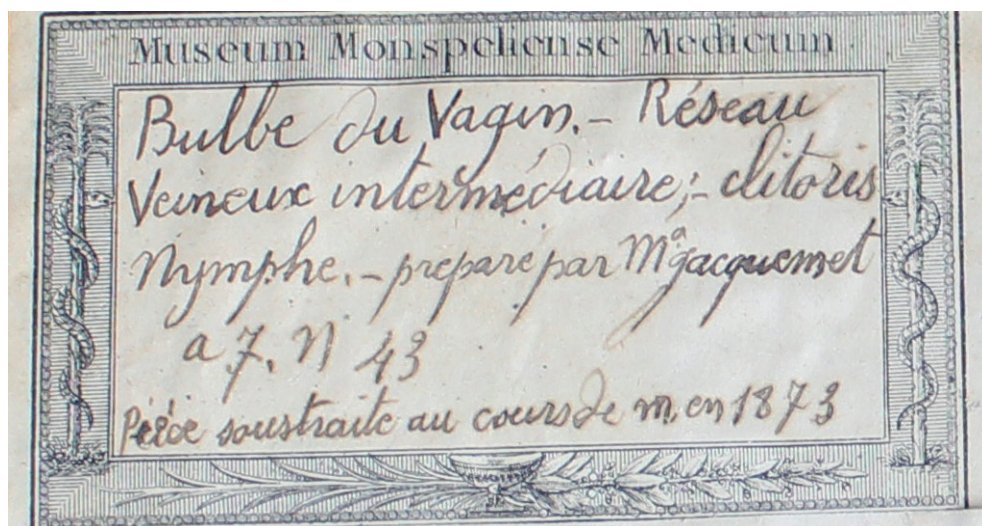 Museum Monspeliense Medicum
Bulbe du Vagin. - Réseau
Veineux intermédiaire; - clitoris
Nymphe. - préparé par Mr jacquemet
a 7. N 43
Pièce soustraite au cours de m. en 1873